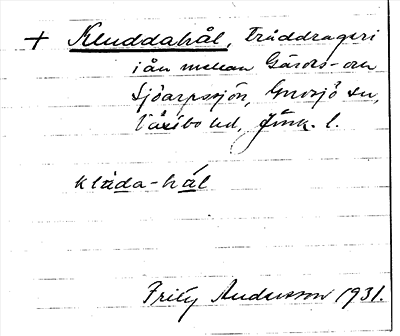 + Kluddahål, Tråddrageri
i ån mellan Gårds- och
Sjöarpssjön, Gnosjö sn,
Västbo hd, Jönk. l.
klàda-hál
Fritz Andersson 1931.